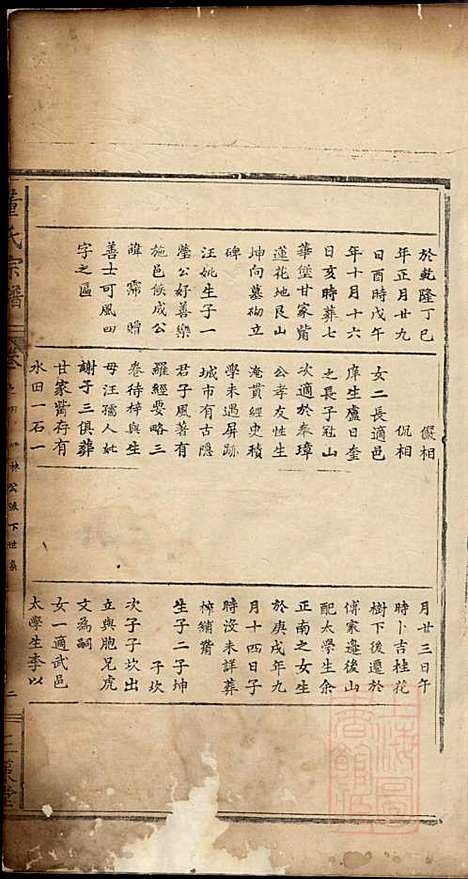 於乾隆丁巳
年正月廿九
日酉時戊午
年十月十六
日亥時葬七
華堡甘家嘴
蓮花地艮山
坤向墓砌立
碑
汪姚生子一
瑩公好善樂
施邑侯成公
諱霈贈
善士可風四
字之匾
儼相
侃相
女二長適邑
庠生盧日奎
之長子冠山
次適於奉璋
公孝友性生
淹貫經史積
學未遇屏跡
城市有古隱
君子風著有
羅經要略三
卷待梓與生
母汪孺人妣
謝子三俱葬
甘家嘴存有
水田一石一
月廿三日午
時卜吉桂花
樹下後遷於
傅家邉後山
配太學生余
正南之女生
於庚戌年九
月十四日子
時沒未詳葬
樟鋪嘴
生子二子坤
子坎
次子子坎出
立與胞兄虎
文為嗣
女一適武邑
太學生李以
董氏宗譜
卷
林公派下世系
二
三策堂
上海圖書館藏